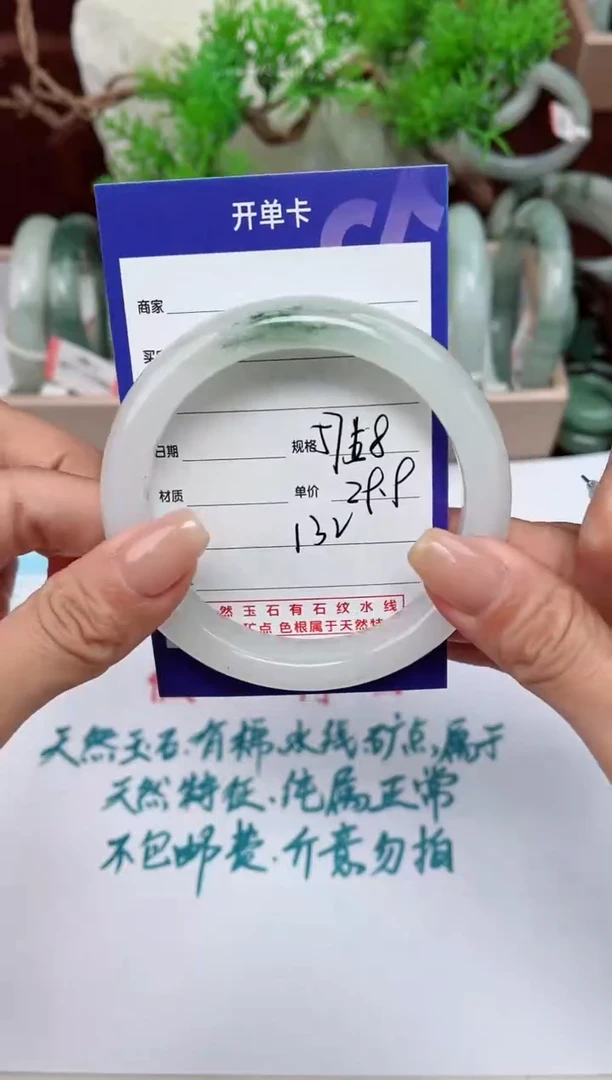 开单卡
商家
买
日期
规格 57孟8
材质
单价 29.9
132
然玉石有石纹水线
矿点 色根属于天然特
天然玉石.有棉.水线.矿点,属于
天然特征.纯属正常
不包邮费.介意勿拍